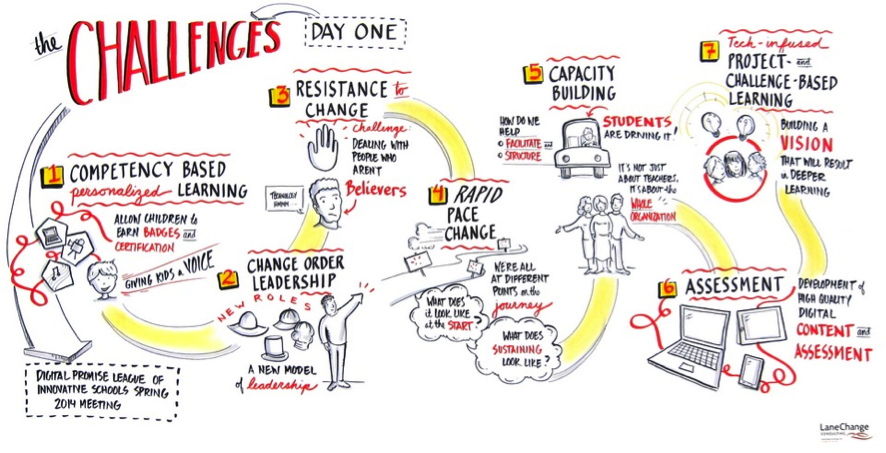 the CHALLENGES
DAY ONE
1 COMPETENCY BASED
personalized LEARNING
ALLOW CHILDREN to
EARN BADGES and
CERTIFICATION
GIVING KIDS a VOICE
2 CHANGE ORDER
LEADERSHIP
NEW ROLES
A NEW MODEL
of leadership
3 RESISTANCE to
CHANGE
challenge:
DEALING WITH
PEOPLE WHO
AREN'T
Believers
TECHNOLOGY
4 RAPID
PACE
CHANGE
WE'RE ALL
AT DIFFERENT
POINTS on the
journey
WHAT DOES
it LOOK LIKE
at the START?
WHAT DOES
SUSTAINING
LOOK LIKE?
5 CAPACITY
BUILDING
HOW DO WE
HELP
FACILITATE and
STRUCTURE
STUDENTS
ARE DRIVING IT!
IT'S NOT JUST
ABOUT TEACHERS,
IT'S ABOUT the
WHOLE
ORGANIZATION
6 ASSESSMENT
DEVELOPMENT of
HIGH QUALITY
DIGITAL
CONTENT and
ASSESSMENT
7 Tech-infused
PROJECT- and
CHALLENGE-BASED
LEARNING
BUILDING A
VISION
THAT WILL RESULT
in DEEPER
LEARNING
DIGITAL PROMISE LEAGUE OF
INNOVATIVE SCHOOLS SPRING
2014 MEETING
LaneChange
CONSULTING